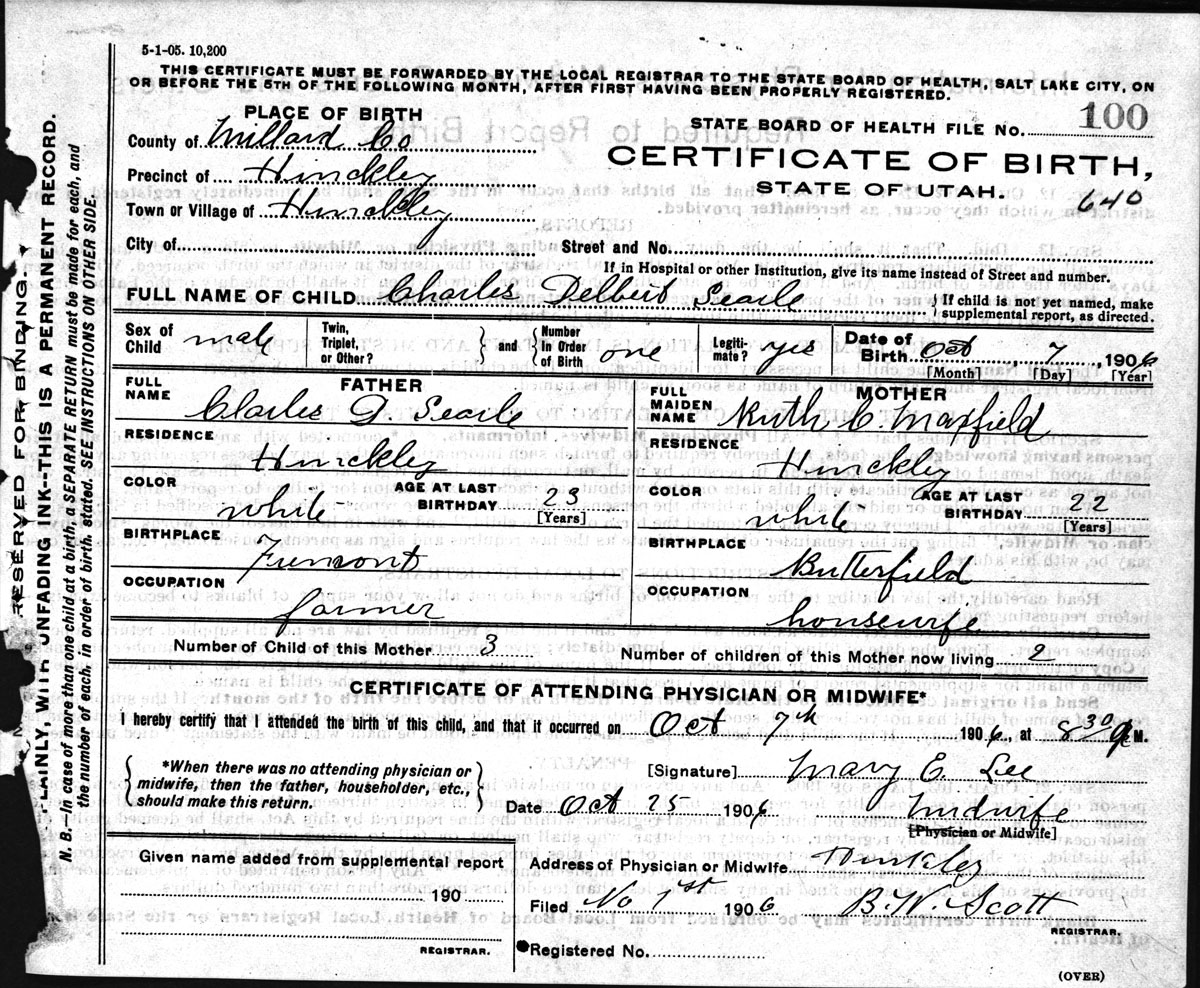 5-1-05. 10,200
THIS CERTIFICATE MUST BE FORWARDED BY THE LOCAL REGISTRAR TO THE STATE BOARD OF HEALTH, SALT LAKE CITY, ON
OR BEFORE THE 5TH OF THE FOLLOWING MONTH, AFTER FIRST HAVING BEEN PROPERLY REGISTERED.
PLACE OF BIRTH
County of Millard Co
Precinct of Hinckley
Town or Village of Hinckley
City of
STATE BOARD OF HEALTH FILE No. 100
CERTIFICATE OF BIRTH,
STATE OF UTAH.
640
Street and No.
If in Hospital or other Institution, give its name instead of Street and number.
FULL NAME OF CHILD Charles Delbert Searle
If child is not yet named, make
supplemental report, as directed.
Sex of Child male
Twin, Triplet, or Other?
and Number in Order of Birth one
Legitimate? yes
Date of Birth Oct 7, 1906
[Month] [Day] [Year]
FATHER
FULL NAME Charles D. Searle
RESIDENCE Hinckley
COLOR white
AGE AT LAST BIRTHDAY 23
[Years]
BIRTHPLACE Fremont
OCCUPATION farmer
MOTHER
FULL MAIDEN NAME Ruth C. Maxfield
RESIDENCE Hinckley
COLOR white
AGE AT LAST BIRTHDAY 22
[Years]
BIRTHPLACE Butterfield
OCCUPATION housewife
Number of Child of this Mother 3
Number of children of this Mother now living 2
CERTIFICATE OF ATTENDING PHYSICIAN OR MIDWIFE*
I hereby certify that I attended the birth of this child, and that it occurred on Oct 7th 1906, at 8 30 M.
*When there was no attending physician or
midwife, then the father, householder, etc.,
should make this return.
[Signature] Mary E. Lee
Date Oct 25 1906
midwife
[Physician or Midwife]
Given name added from supplemental report
190
REGISTRAR.
Address of Physician or Midwife Hinckley
Filed No 1st 1906
B. W. Scott
REGISTRAR.
Registered No.
(OVER)
RESERVED FOR BINDING.
WITH UNFADING INK--THIS IS A PERMANENT RECORD.
N. B.--In case of more than one child at a birth, a SEPARATE RETURN must be made for each, and
the number of each, in order of birth, stated. SEE INSTRUCTIONS ON OTHER SIDE.